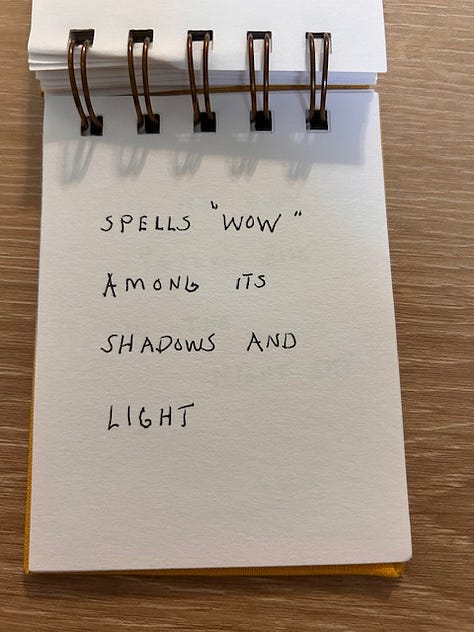 SPELLS "WOW"
AMONG ITS
SHADOWS AND
LIGHT